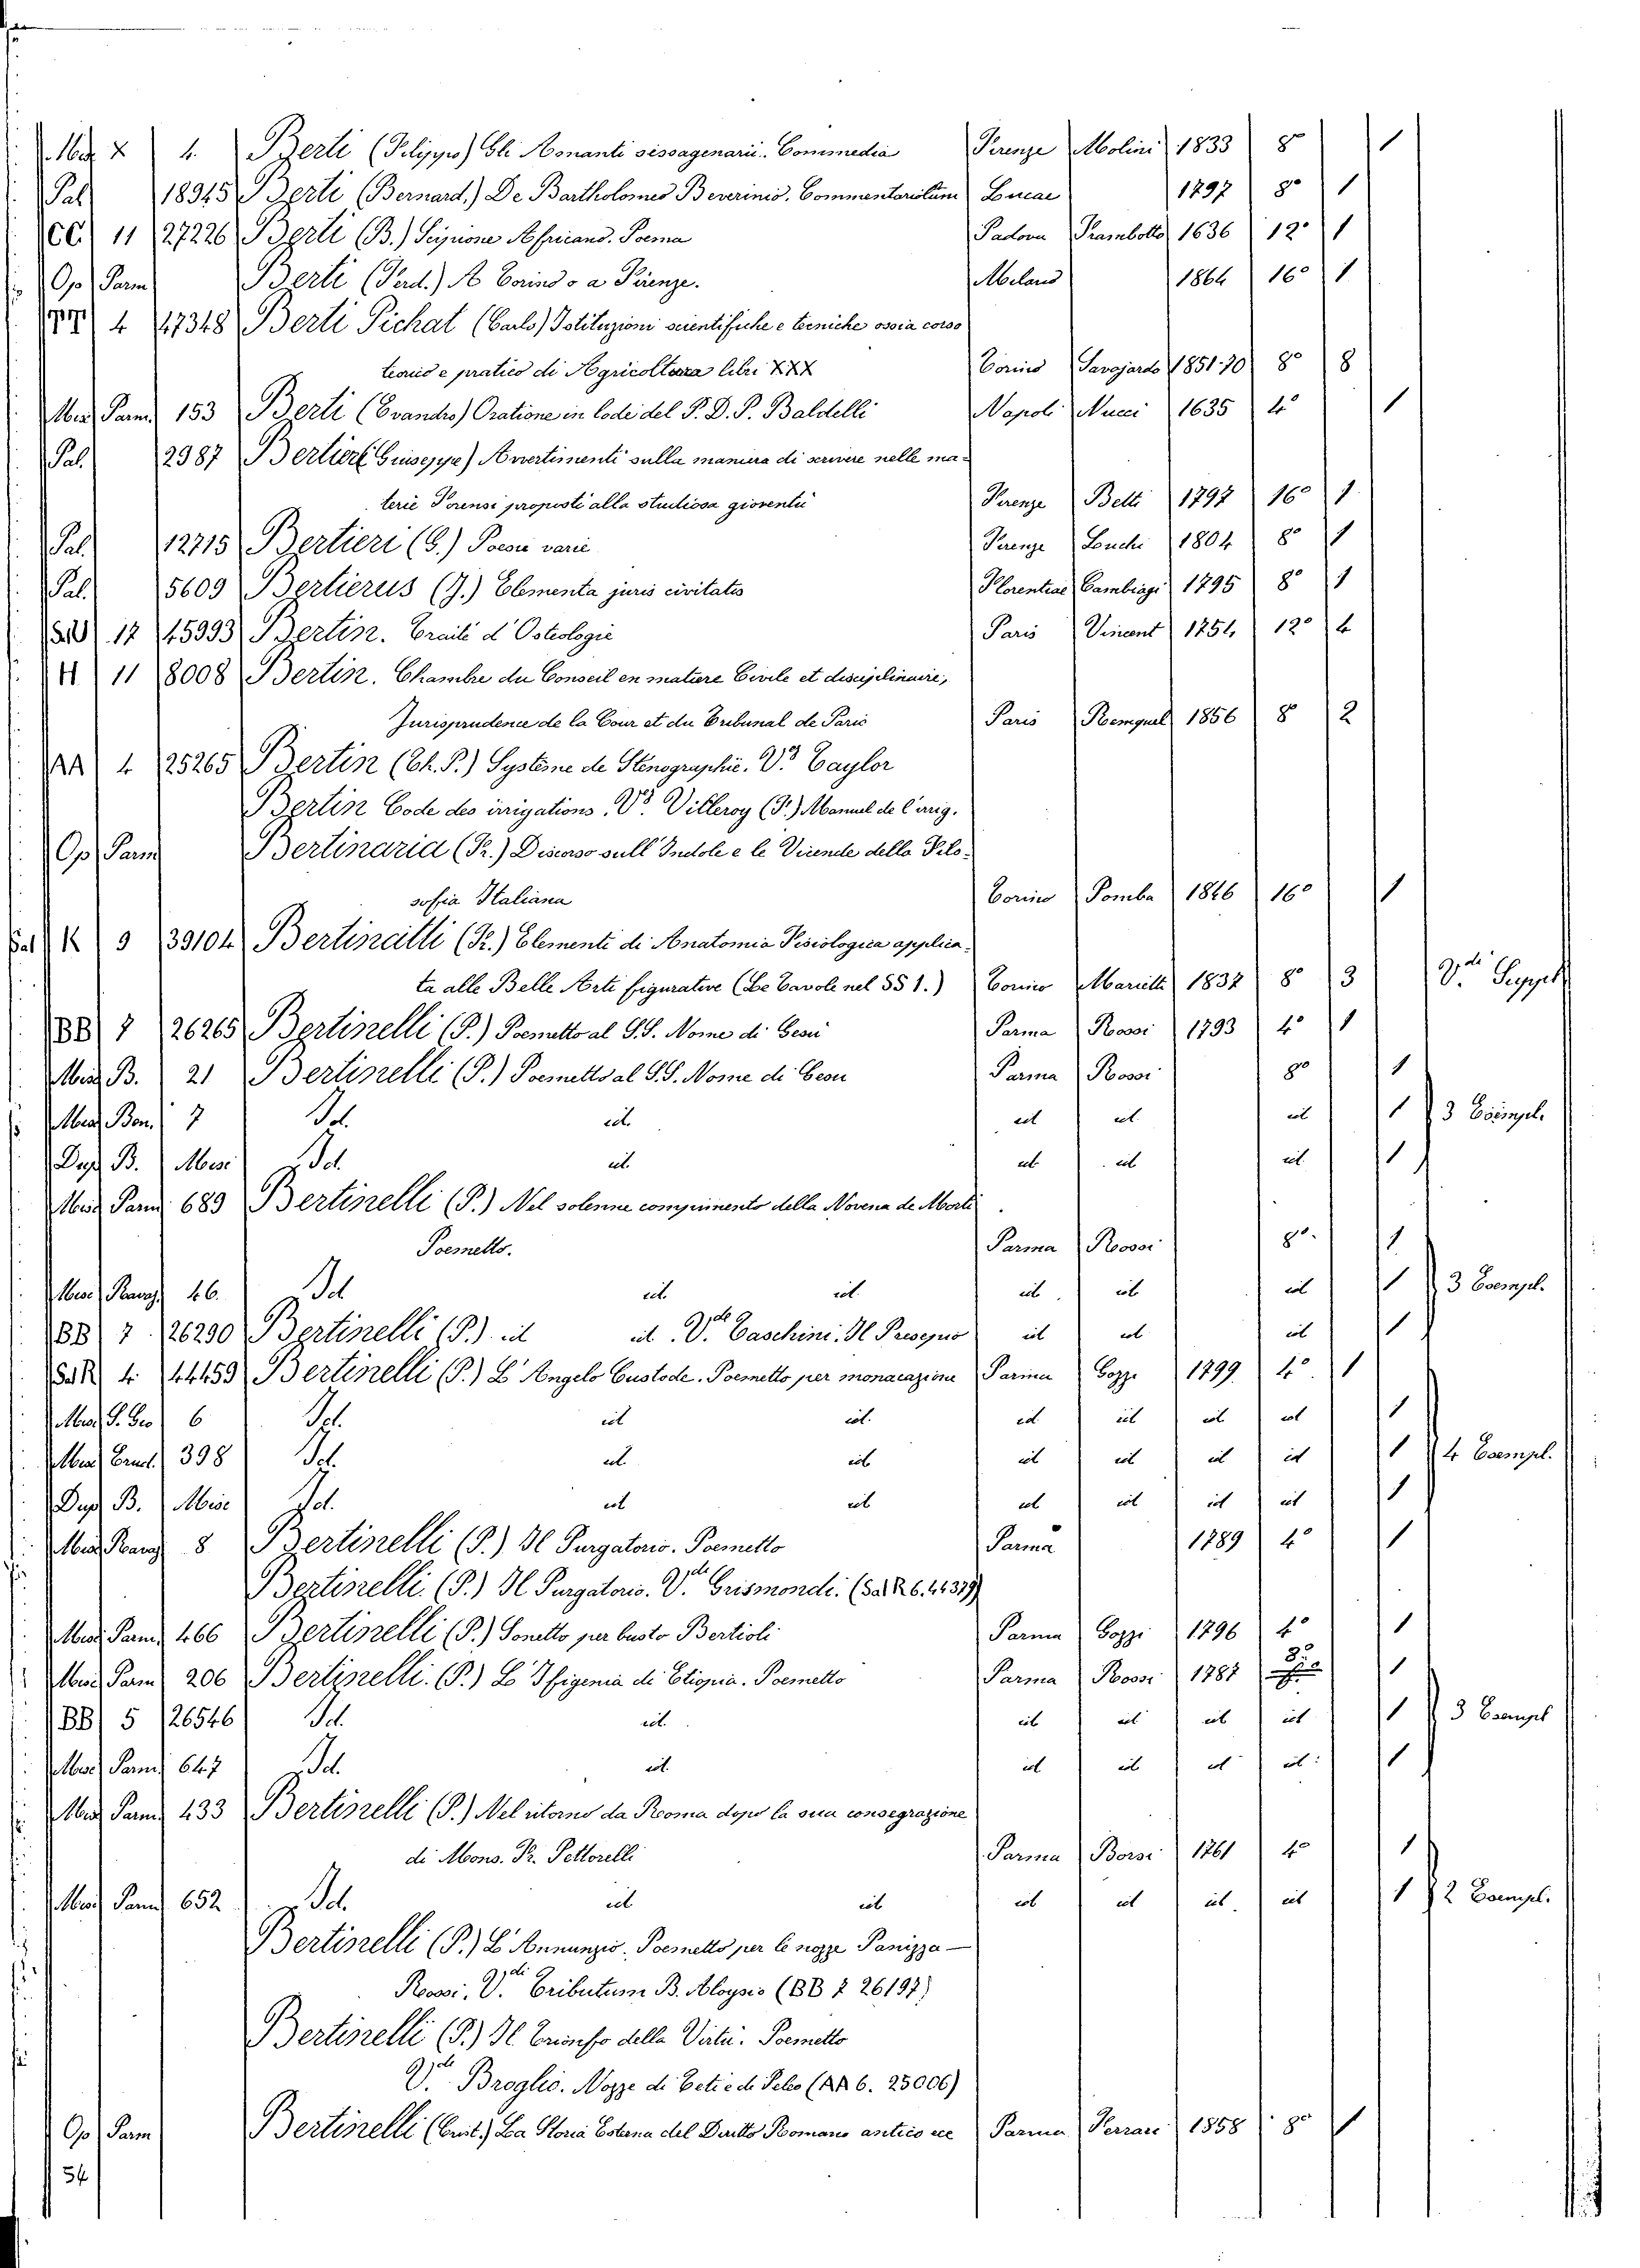 Misc X 4. Berti (Filippo) Gli Amanti sessagenarii. Commedia Firenze Molini 1833 8° 1
Pal 18945 Berti (Bernard.) De Bartholomeo Beverinio. Commentariolum Lucae 1797 8° 1
CC. 11 27226 Berti (B.) Scipione Africano. Poema Padova Frambotto 1636 12° 1
Op Parm Berti (Ferd.) A Torino o a Firenze. Milano 1864 16° 1
4 47348 Berti Pichat (Carlo) Istituzioni scientifiche e tecniche ossia corso
teorico e pratico di Agricoltura libri XXX Torino Savojardo 1851-70 8° 8
Misc Parm 153 Berti (Evandro) Oratione in lode del P. D. P. Baldelli Napoli Nucci 1635 4° 1
Pal. 2987 Bertieri Giuseppe) Avvertimenti sulla maniera di scrivere nelle ma-
terie Forensi proposti alla studiosa gioventù Firenze Betti 1797 16° 1
Pal. 12715 Bertieri (G.) Poesie varie Firenze Luchi 1804 8° 1
Pal. 5609 Bertierus (J.) Elementa juris civitatis Florentiae Cambiagi 1795 8° 1
17 45993 Bertin. Traité d'Osteologie Paris Vincent 1754 12° 4
H 11 8008 Bertin. Chambre du Conseil en matiere Civile et disciplinaire,
Jurisprudence de la Cour et du Tribunal de Paris Paris 1856 8 2
AA 4 25265 Bertin (Th. P.) Systeme de Stenographie. V.di Taylor
Bertin Code des irrigations. V.di Villeroy (F.) Manuel de l'irrig.
Op Parm Bertinaria (Fr.) Discorso sull'Indole e le Vicende della Filo-
soffia Italiana Torino Pomba 1846 16° 1
Sal K 9 39104 Bertinatti (Fr.) Elementi di Anatomia Fisiologica applica-
ta alle Belle Arti figurative (Le Tavole nel SS 1.) Torino Marietti 1837 8° 3 V.di Suppl
BB 7 26265 Bertinelli (P.) Poemetto al S.S. Nome di Gesù Parma Rossi 1793 4° 1
Misc B. 21 Bertinelli (P.) Poemetto al S.S. Nome di Gesu Parma Rossi 8° 1
Misc Bon. 7 Id. id. id id id 1 3 Esempl.
Dup B. Misc Id. id. id id id 1
Misc Parm 689 Bertinelli (P.) Nel solenne compimento della Novena de Morti
Poemetto. Parma Rossi 8°. 1
Misc Ravaz 46. Id id. id. id id id 1 3 Esempl.
BB 7 26290 Bertinelli (P.) id id V.di Taschini. Il Presepio id id id 1
Sal R 4 44459 Bertinelli (P.) L'Angelo Custode. Poemetto per monacazione Parma Gozzi 1799 4° 1
Misc S. Geo 6 Id. id id. id id id id 1
Misc Erud. 398 Id. id. id id id id id 1 4 Esempl.
Dup B. Misc Id. id id id id id id 1
Misc Ravaz 8 Bertinelli (P.) Il Purgatorio. Poemetto Parma 1789 4° 1
Bertinelli (P.) Il Purgatorio. V.di Grismondi. (Sal R 6. 44379)
Misc Parm 466 Bertinelli (P.) Sonetto per busto Bertioli Parma Gozzi 1796 4° 1
Misc Parm 206 Bertinelli. (P.) L'Ifigenia di Etiopia. Poemetto Parma Rossi 1787 8° 1
BB 5 26546 Id. id. id id id id 1 3 Esempl
Misc Parm 647 Id. id. id id id id 1
Misc Parm 433 Bertinelli (P.) Nel ritorno da Roma dopo la sua consegrazione
di Mons. Fr. Pettorelli Parma Borsi 1761 4° 1
Misc Parm 652 Id. id id id id id id 1 2 Esempl.
Bertinelli (P.) L'Annunzio. Poemetto per le nozze Panizza-
Rossi. V.di Tributum B. Aloysio (BB 7 26197)
Bertinelli (P.) Il Trionfo della Virtù. Poemetto
V.di Broglio. Nozze di Teti e di Peleo (AA 6. 25006)
Op Parm Bertinelli (Crist.) La Storia Esterna del Diritto Romano antico ecc Parma Ferrari 1858 8° 1
54